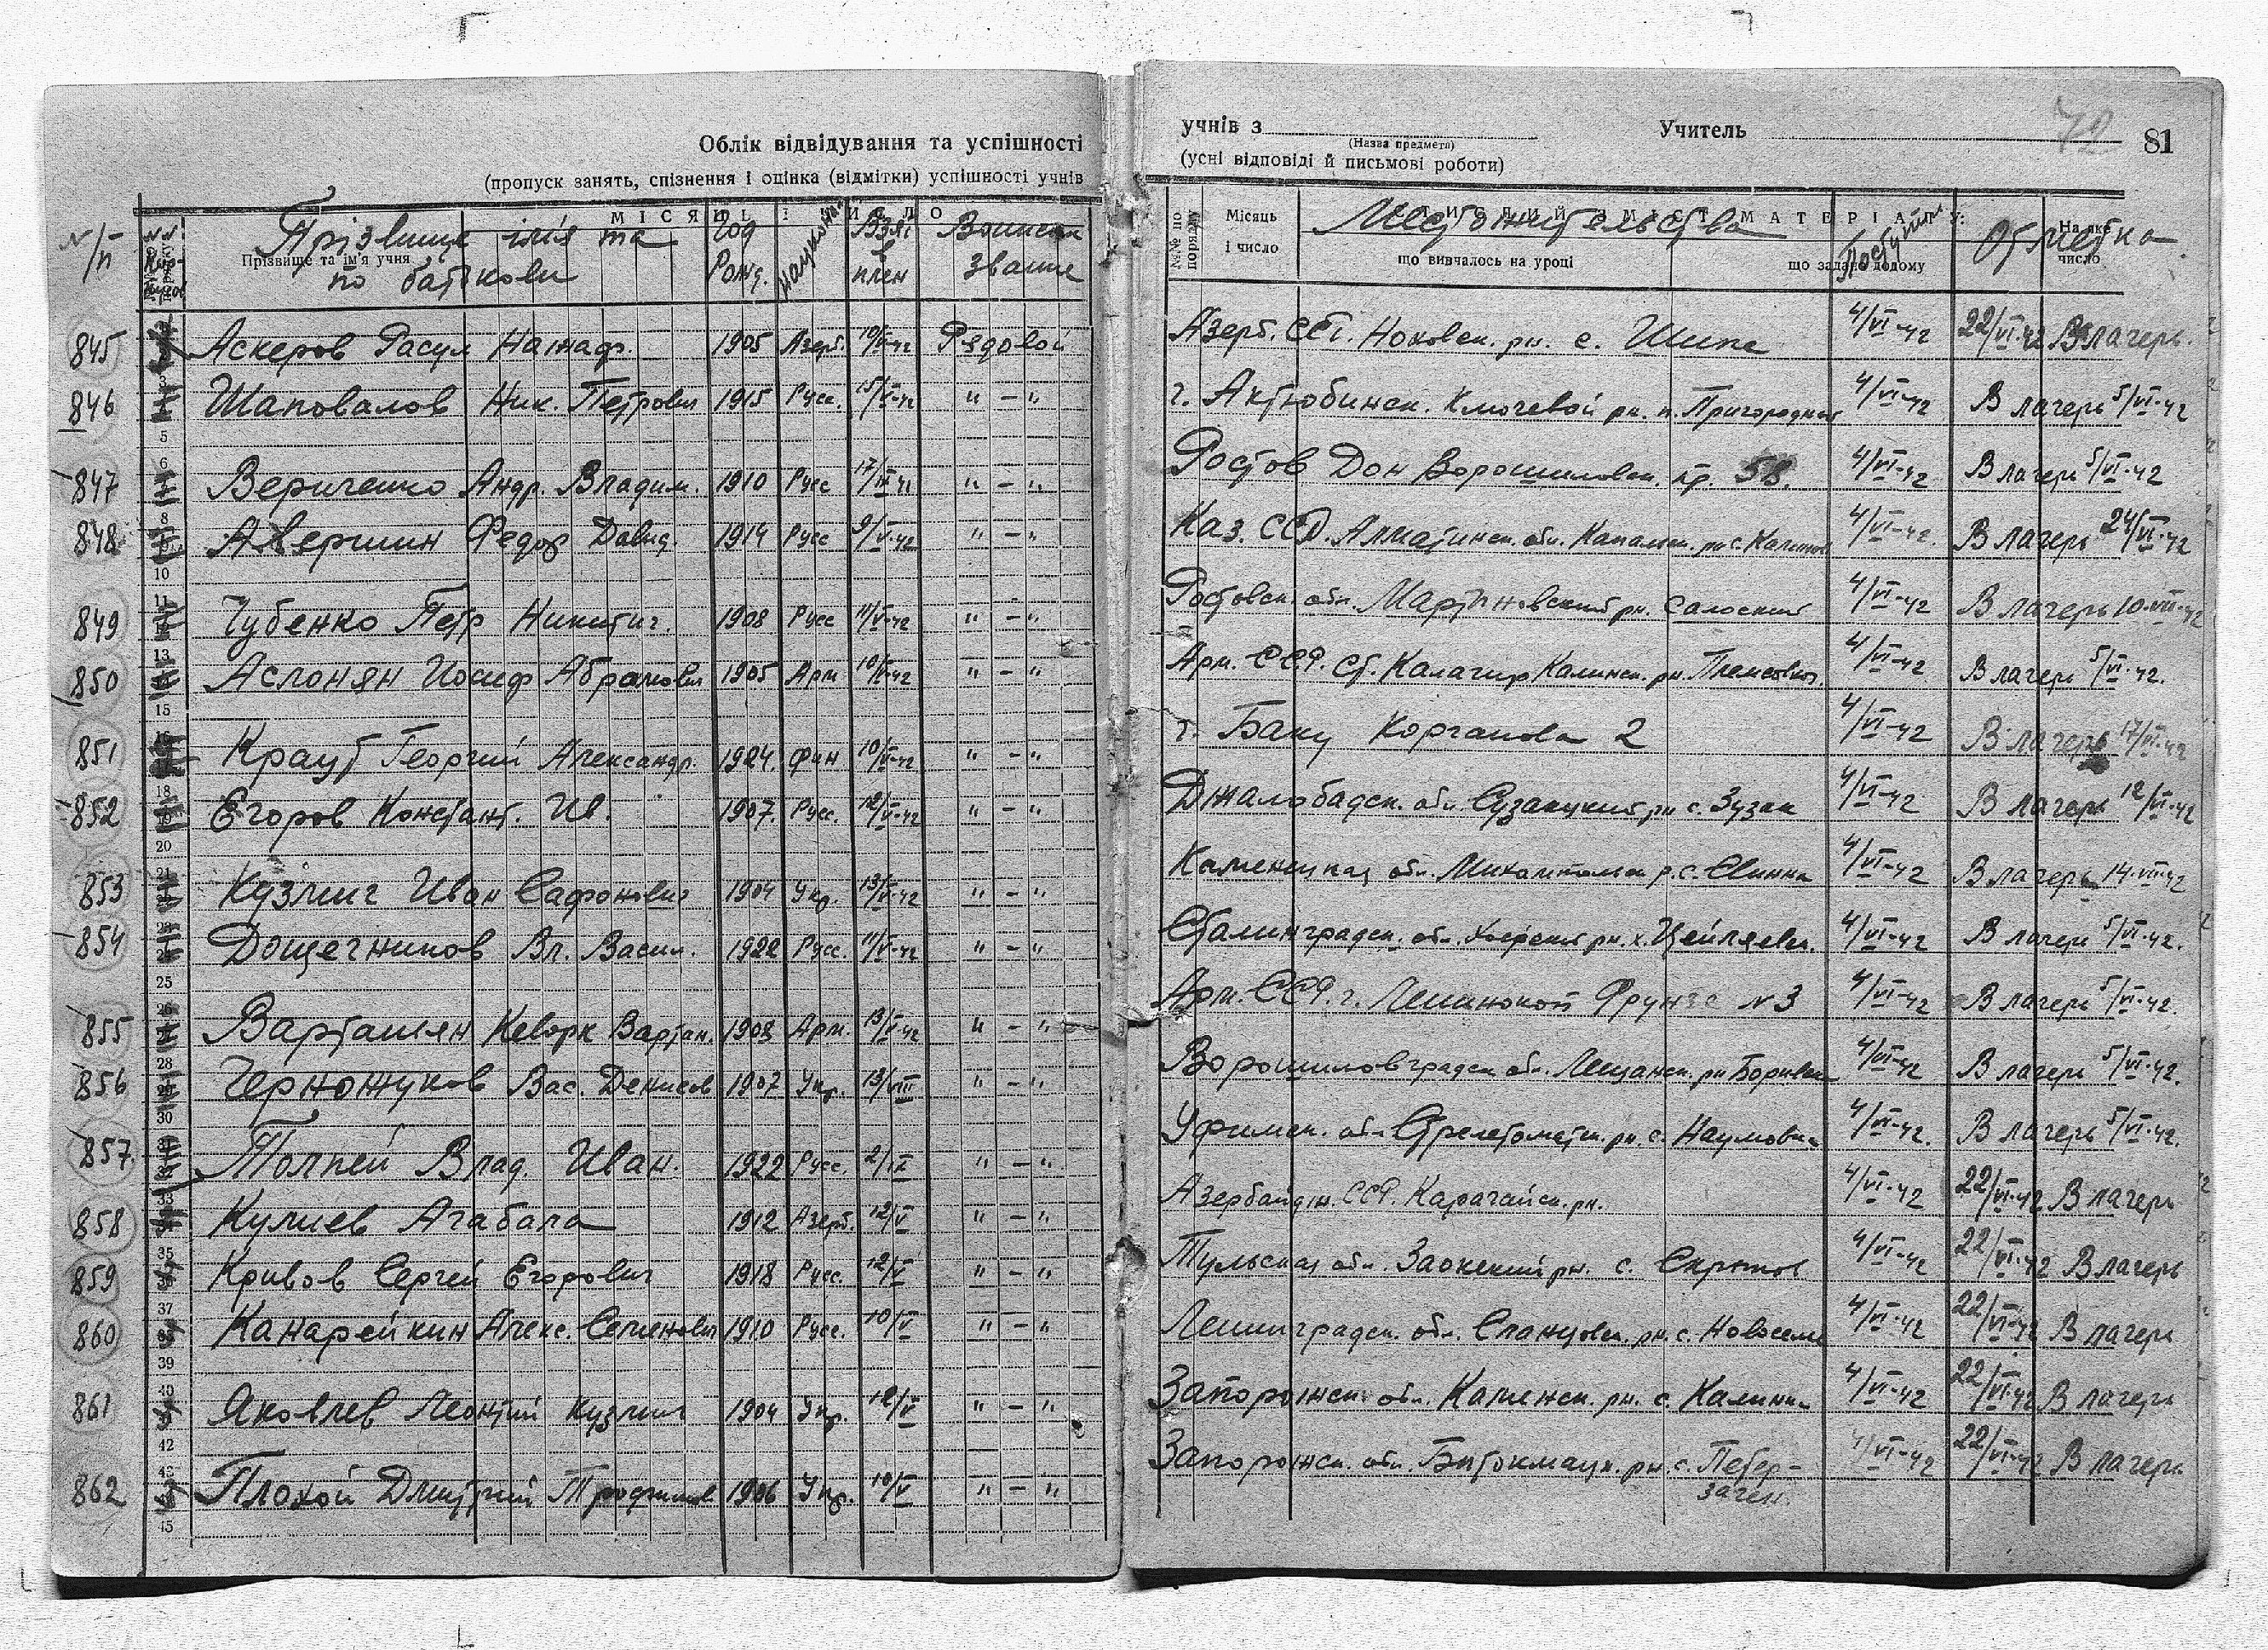 Облік відвідування та успішності
(пропуск занять, спізнення і оцінка (відмітки) успішності учнів
учнів з
(Назва предмета)
Учитель
72
81
(усні відповіді й письмові роботи)
N/п
МІСЯЦЬ І ЧИСЛО
Прізвище та ім'я учня
Прізвище імія та
по батькови
Год
Рожд.
Национ.
Взят
в
плен
Воинское
звание
№№ по порядку
Місяць
і число
Местожительство
що вивчалось на уроці
що задано додому
Поступил
Отметка
На яке
число
845 Аскеров Расул Нажаф. 1905 Азерб. 10/V-42 Рядовой Азерб. ССР. с. Шипе 4/VI-42 22/VI-42 В лагерь.
846 Шаповалов Ник. Петрович 1915 Русс. 15/V-42 " - " г. Актюбинск. Ключевой рн. п. Пригородный 4/VI-42 В лагерь 5/VI-42
847 Вериченко Андр. Владим. 1910 Русс " - " Ростов Дон Ворошиловск. пр. 58. 4/VI-42 В лагерь 5/VI-42
848 Авершин Федор Давид. 1914 Русс 9/V-42 " - " Каз. ССР. Алматинск. обл. 4/VI-42. В лагерь 24/VI-42
849 Чубенко Петр Никитич. 1908 Русс 11/V-42 " - " Ростовск. обл. Мартиновский рн. 4/VI-42 В лагерь 10-VII-42
850 Аслонян Иосиф Абрамович 1905 Арм 10/V-42 " - " Арм. ССР. ст. Калагир Калинск. рн. 4/VI-42 В лагерь 5/VI-42.
851 Крауб Георгий Александр. 1924. фин 10/V-42 " - " г. Баку Корганова 2 4/VI-42 В лагерь 17/VI-42
852 Егоров Констант. Ив. 1907. Русс. 12/V-42 " - " Джалобадск. обл. Сузакукий рн с. Зузак 4/VI-42 В лагерь 12/VI-42
853 Кузмич Иван Сафонович 1904 Укр. 13/V-42 " - " Каменецкая обл. 4/VI-42 В лагерь 14-VII-42
854 Дощечников Вл. Васил. 1922 Русс. 11/V-42 " - " Сталинградск. обл. 4/VI-42 В лагерь 5/VI-42.
855 Вартаньян Кеворк Вартан. 1908 Арм. 13/V-42 " - " Арм. ССР. г. Ленинокан Фрунзе N3 4/VI-42 В лагерь 5/VI-42.
856 Черножуков Вас. Денисов 1907 Укр. 13/VIII " - " Ворошиловградск обл. 4/VI-42 В лагерь 5/VI-42.
857. Толпей Влад. Иван. 1922 Русс. " - " Уфимск. обл 4/VI-42. В лагерь 5/VI-42.
858 Кулиев Агабала 1912 Азерб. 12/V " - " Азербайдж. ССР. Карагайск. рн. 4/VI-42 22/VI-42 В лагерь
859 Кривов Сергей Егорович 1918 Русс. 12/V " - " Тульская обл. Заокский рн. с. 4/VI-42 22/VI-42 В лагерь
860 Канарейкин Алекс. Семенович 1910 Русс. 10/V " - " Ленинградск. обл. Сланцовск. рн. с. Новоселье 4/VI-42 22/VI-42 В лагерь
861 Яковлев Леонтий Кузмич 1904 Укр. 12/V " - " Запорожск. обл. Каменск. рн. с. 4/VI-42 22/VI-42 В лагерь
862 Плохой Дмитрий Трофимов 1906 Укр. 10/V " - " Запорожск. обл. рн. с. Петер-
заген. 4/VI-42 22/VI-42 В лагерь